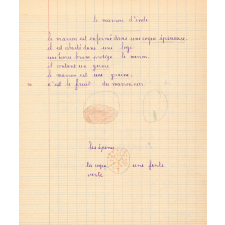 le marron d'inde
le marron est enfermé dans une coque épineuse.
il est abrité dans une loge.
une peau brune protège le marron.
il contient une graine.
le marron est une graine.
c'est le fruit du marronnier.
les épines
la coque une fente
verte